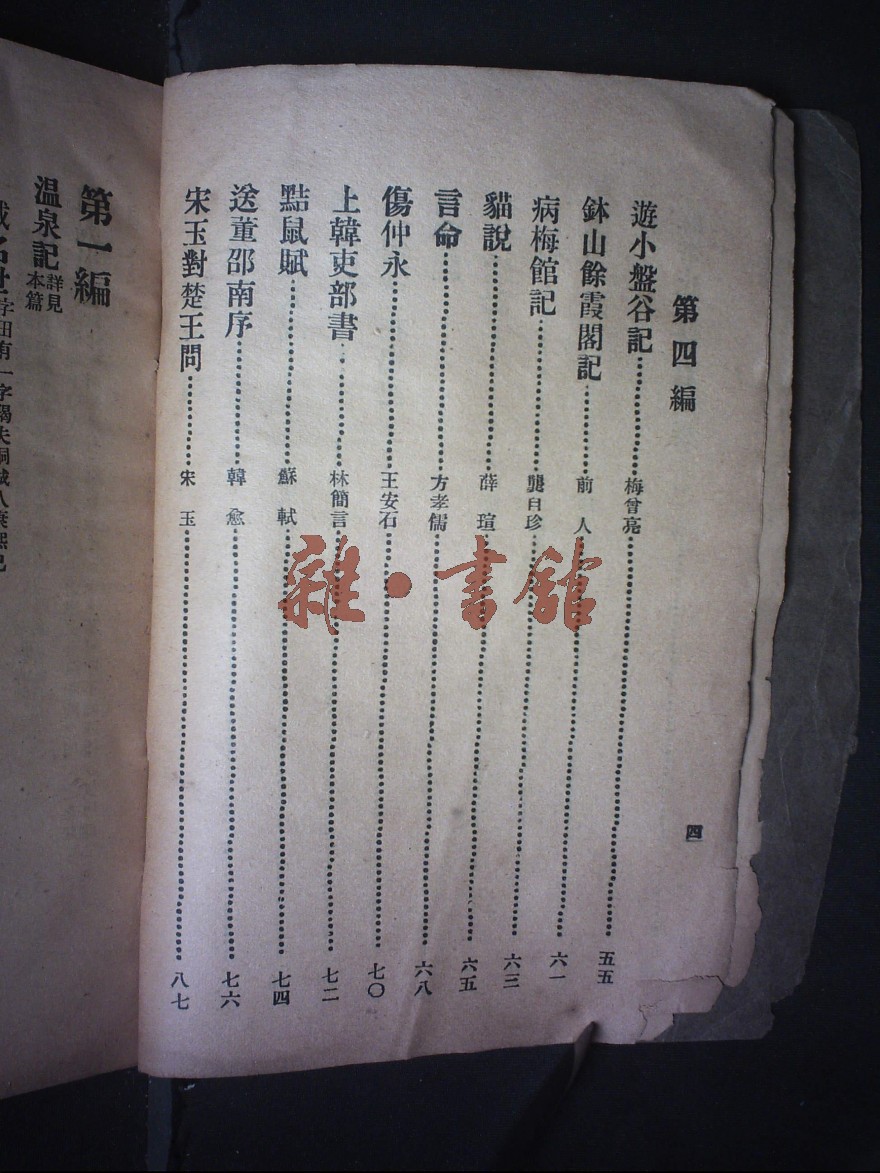 第四編
遊小盤谷記 梅曾亮 五五
鉢山餘霞閣記 前人 六一
病梅館記 龔自珍 六三
貓說 薛瑄 六五
言命 方孝儒 六八
傷仲永 王安石 七〇
上韓吏部書 林簡言 七二
黠鼠賦 蘇軾 七四
送董邵南序 韓愈 七六
宋玉對楚王問 宋玉 八七
四
雜·書館
第一編
温泉記 詳見本篇